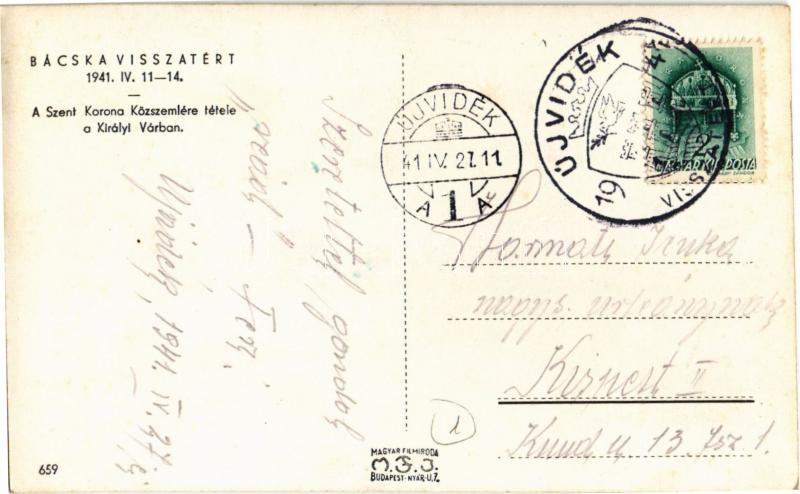 BÁCSKA VISSZATÉRT
1941. IV. 11—14.
A Szent Korona Közszemlére tétele
a Királyi Várban.
ÚJVIDÉK
41 IV. 27. 11
A 1 A
ÚJVIDÉK
19 41
MAGYAR KIR. POSTA
Szeretettel gondol
Feri
Ujvidék, 1941. IV. 27.
Irnka
nagys.
Kispest II
Kund u 13 fsz 1.
1
659
MAGYAR FILMIRODA
M.F.I.
BUDAPEST-NYÁR-U.7.